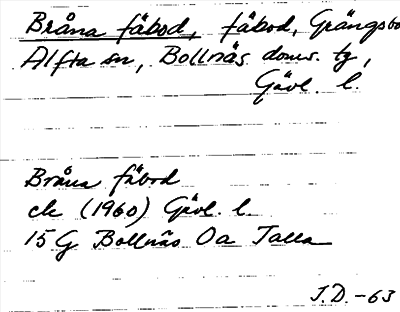 Bråna fäbod, fäbod, Grängsbo
Alfta sn, Bollnäs doms. tg,
Gävl. l.
Bråna fäbod
ek (1960) Gävl. l.
15 G Bollnäs Oa Talla
J.D. -63